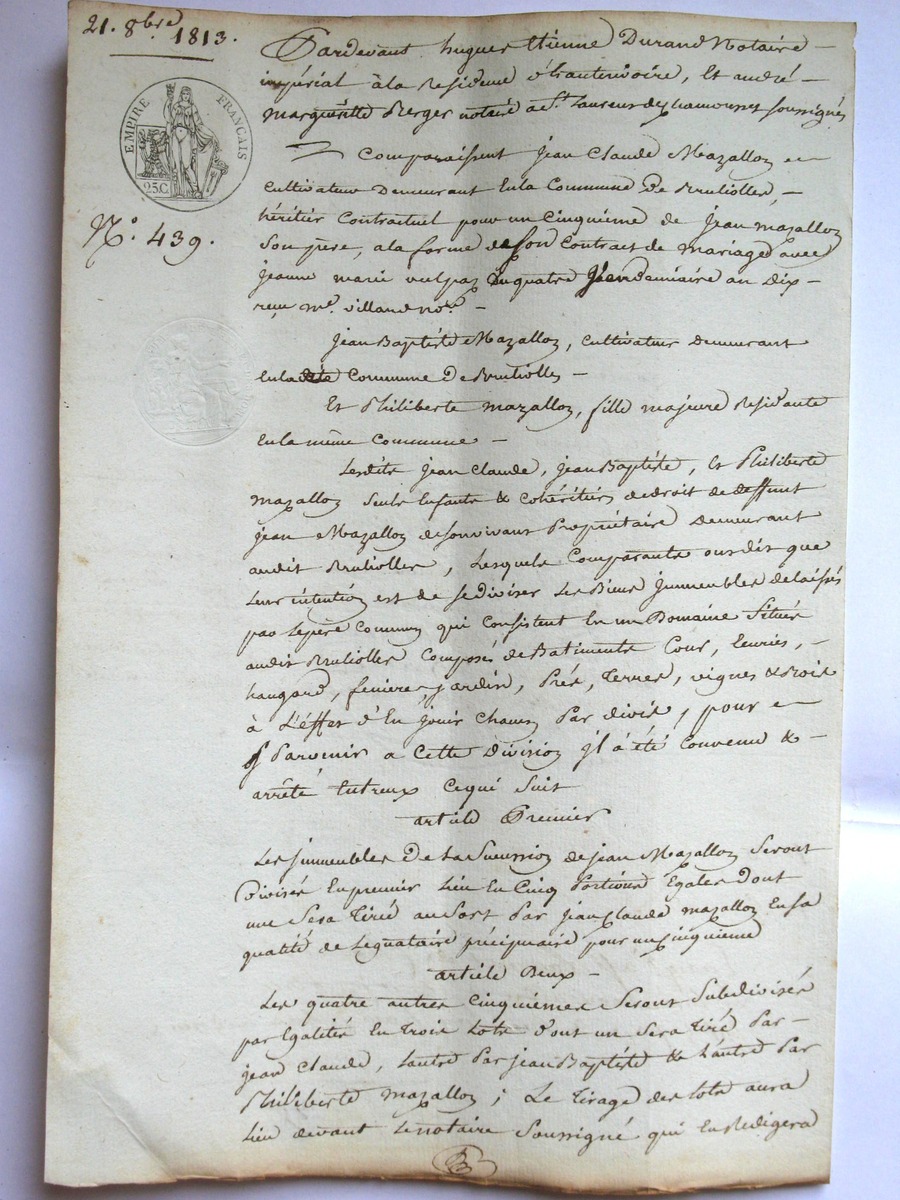 21. 8bre 1813.
EMPIRE FRANÇAIS
25C
N.º 439.
Pardevant hugues Etienne Durand Notaire
impérial à la Residence d'hauterivoire, Et andré
Margueritte Berger notaire a St. Laurens de chamousset soussignés
Comparaissent Jean Claude Mazallon
Cultivateur Demeurant En la Commune De Brullioller,
héritier Contractuel pour un Cinquième de Jean Mazallon
Son père, a la forme de son Contract de mariage avec
Jeanne marie vulpas du quatre Vendemiaire an Dix
reçu Me. Villand nore.
Jean Baptiste Mazallon, Cultivateur demeurant
En ladite Commune de Brullioller
Et Philiberte Mazallon, fille majeure Residante
En la même Commune
Lesdits Jean Claude, Jean Baptiste, Et Philiberte
mazallon Seuls Enfants & Cohéritiers de droit de deffunt
Jean Mazallon de son vivant Propriétaire Demeurant
audit Brullioller, Lesquels Comparants ont dit que
Leur intention est de se diviser Les Biens Immeubles delaissés
par Le père Commun qui Consistent En un Domaine Situés
audit Brullioller Composés de Batiments Cour, Ecuries,
hangard, fenieres, jardin, Prés, Terres, vignes & Bois
à L'effet d'En jouir Chacun Par divis, pour
Parvenir a Cette Division il a été Convenu &
arrêté Entreux Ce qui Suit
article Premier
Les Immeubles De La Succession de Jean Mazallon Seront
Divisés En premier Lieu En Cinq Portions Egales dont
une Sera Tiré au Sort Par Jean Claude mazallon En sa
qualité de Legataire préciputaire pour un Cinquieme
article Deux
Les quatre autres Cinquiemes Seront Subdivisés
par Egalités En Trois Lots d'ont un Sera Tiré Par
Jean Claude, Lautre Par Jean Baptiste & L'autre Par
Philiberte Mazallon ; Le Tirage des Lots aura
Lieu devant Le notaire Soussigné qui En Redigera